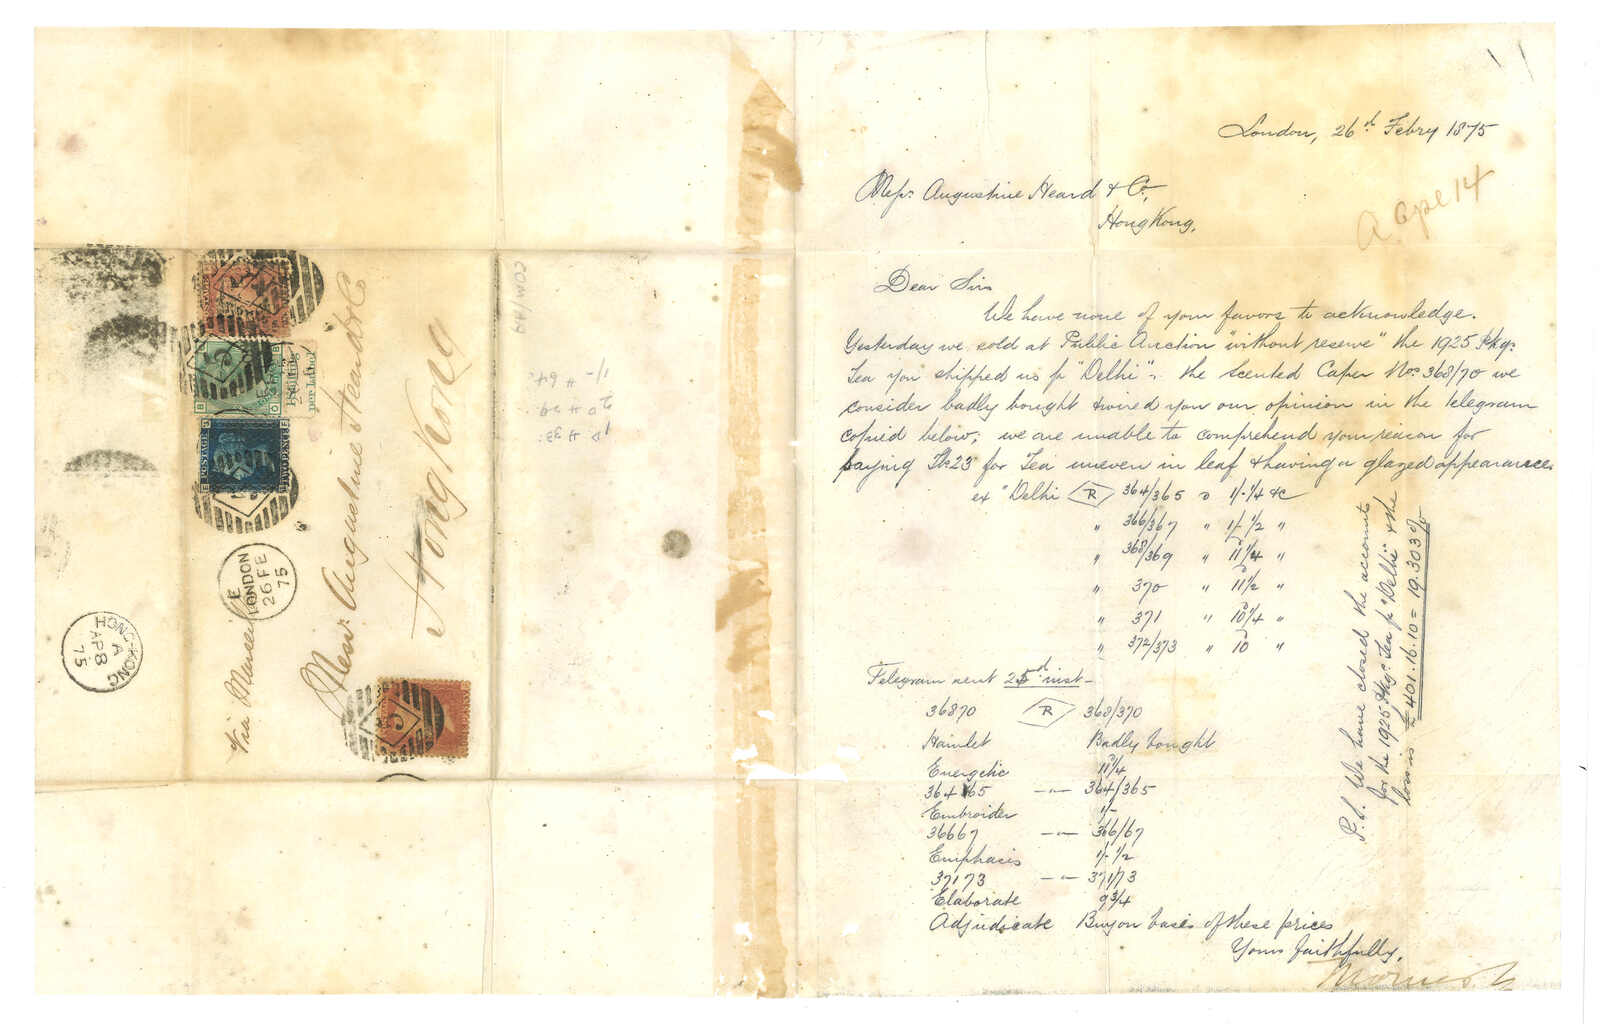 London, 26th Febry 1875
Messrs Augustine Heard & Co,
Hong Kong.
A Apl 14
Dear Sirs
We have none of your favors to acknowledge.
Yesterday we sold at Public Auction "without reserve" the 1925 Pkgs
Tea you shipped us p "Delhi". The Scented Caper Nos. 368/70 we
consider badly bought & wired you our opinion in the telegram
copied below; we are unable to comprehend your reason for
paying Tls 23 for Tea uneven in leaf & having a glazed appearance.
ex "Delhi R 364/365 @ 1/- 1/4 &c
" 366/367 " 1/- 1/2 "
" 368/369 " 11d 1/4 "
" 370 " 11d 1/2 "
" 371 " 10d 1/4 "
" 372/373 " 10d "
Telegram sent 25th inst -
36870 R 368/370
Hamlet Badly bought
Energetic 11d 1/4
364 65 -"- 364/365
Embroider 1/-
36667 -"- 366/67
Emphasis 1/- 1/2
37173 -"- 371/73
Elaborate 9 3/4
Adjudicate Buy on basis of these prices
Yours faithfully,
P.S. We have closed the accounts
for the 1925 Pkgs Tea p "Delhi" & the
loss is £401.16.10 = 19.303 %
Via Marseilles
Messrs Augustine Heard & Co
Hong Kong
E
LONDON
26 FE
75
HONG-KONG
A
AP 8
75
POSTAGE
TWO PENCE
1 Shilling
per Letter
COM/AH
1/- # 64.